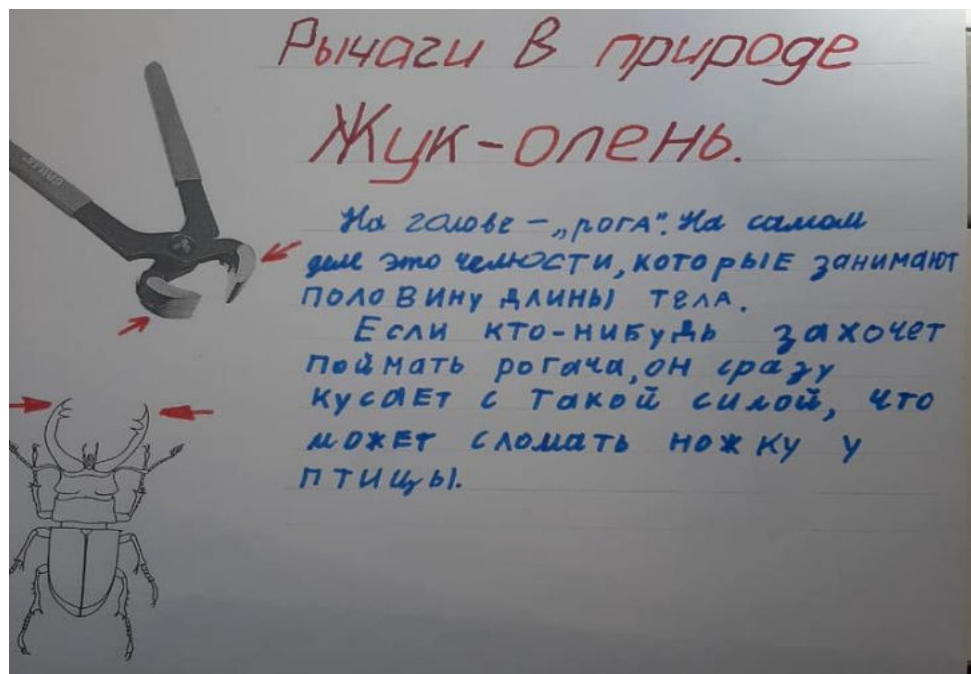 Рычаги в природе
Жук-олень.
На голове – „рога". На самом
деле это челюсти, которые занимают
половину длины тела.
Если кто-нибудь захочет
поймать рогача, он сразу
кусает с такой силой, что
может сломать ножку у
птицы.